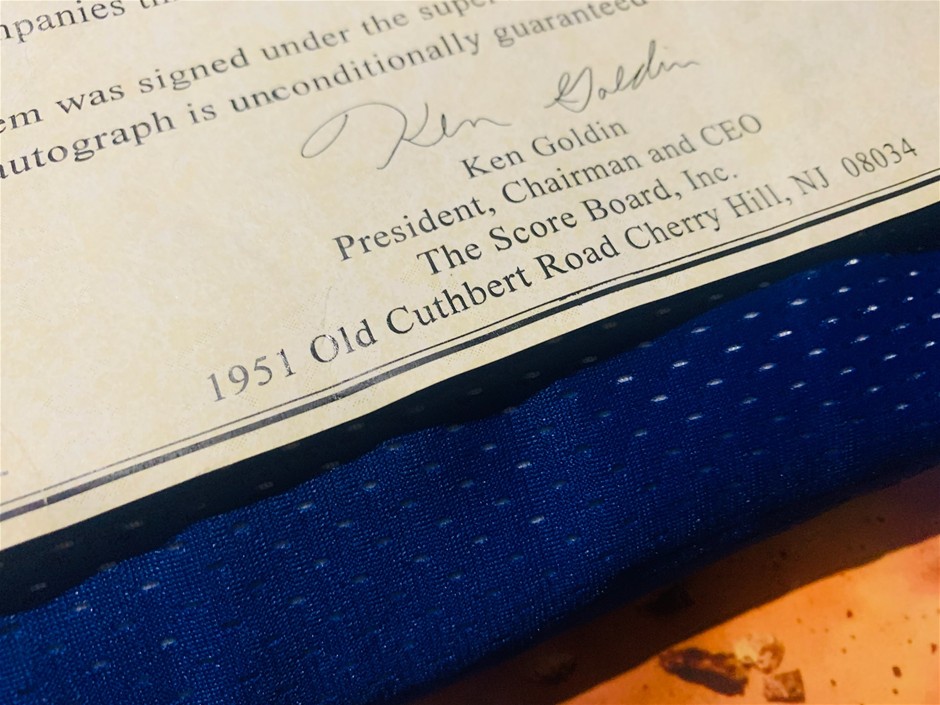 mpanies th
em was signed under the super
autograph is unconditionally guaranteed
Ken Goldin
Ken Goldin
President, Chairman and CEO
The Score Board, Inc.
1951 Old Cuthbert Road Cherry Hill, NJ 08034